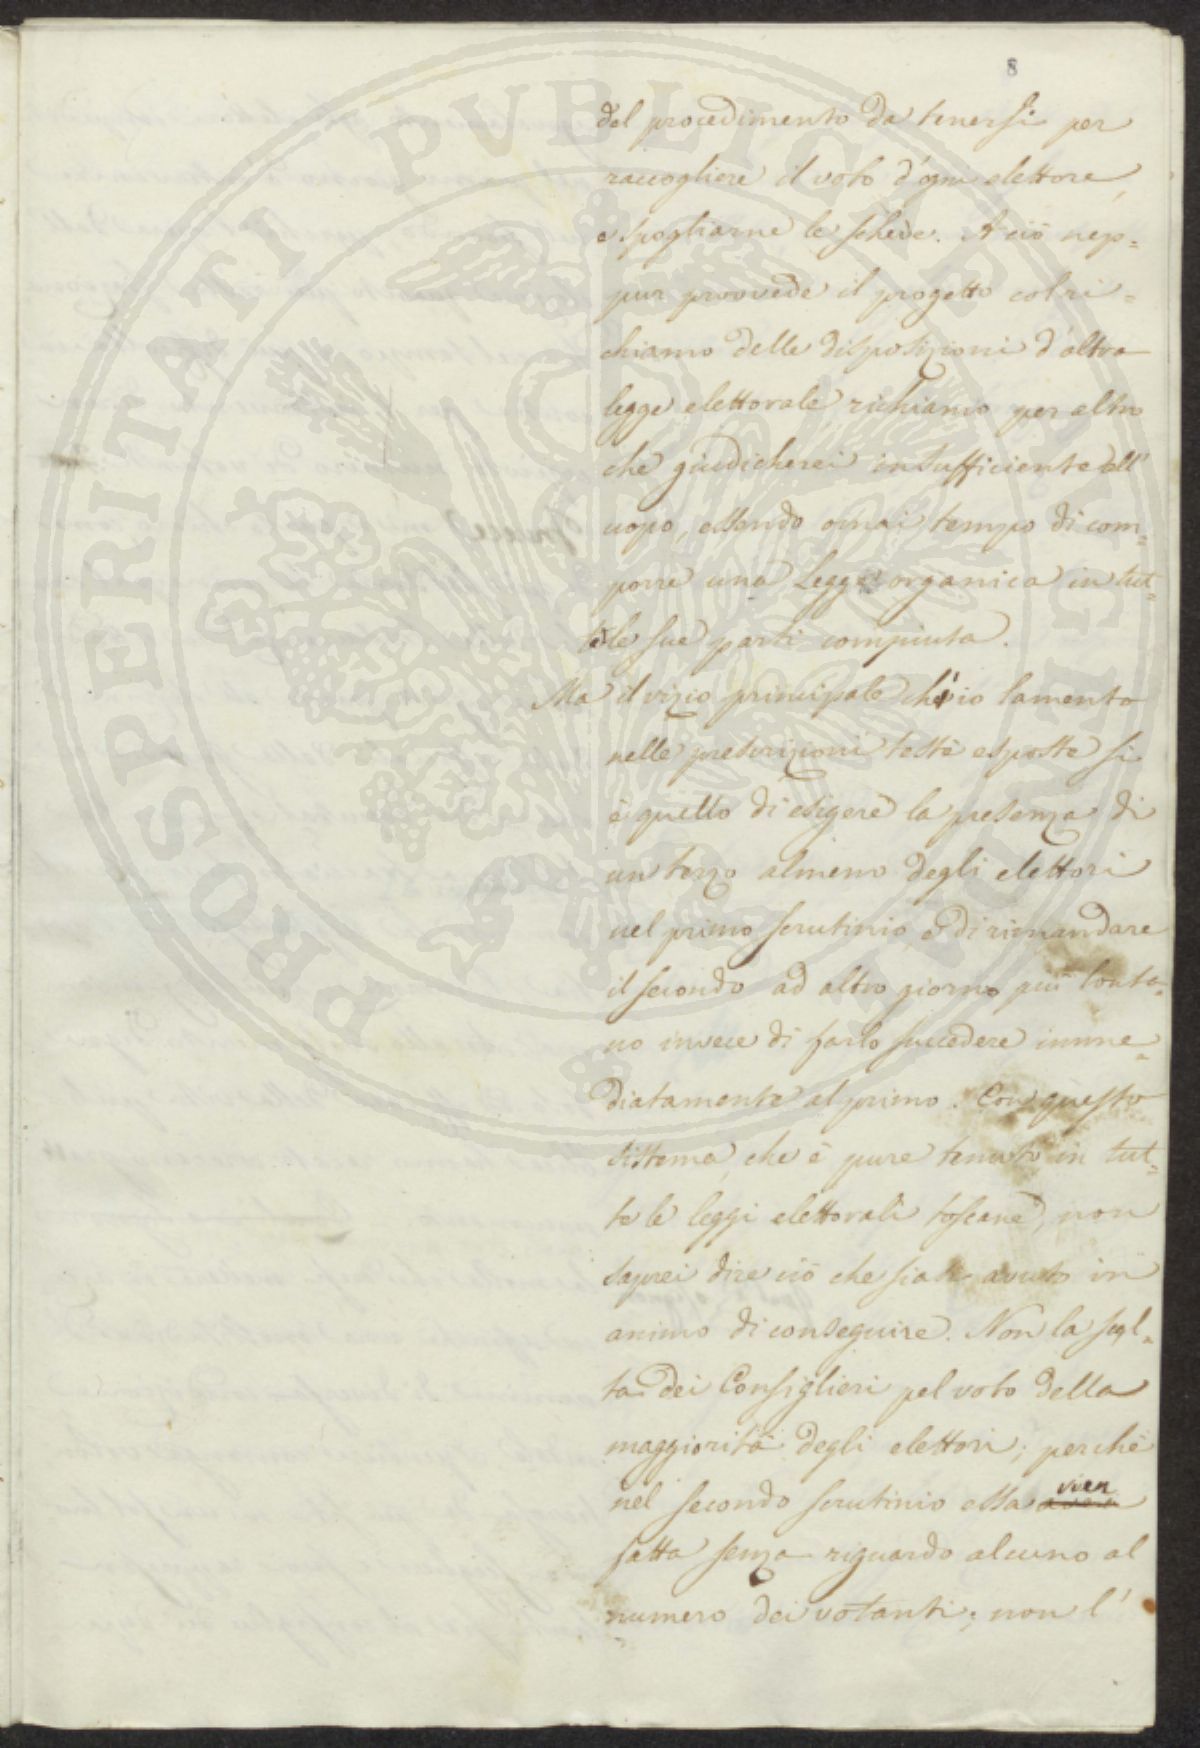 8
del procedimento da tenersi per
raccogliere il voto d'ogni elettore,
e spogliarne le schede. A ciò nep=
pur provvede il progetto col ri=
chiamo delle disposizioni d'altra
legge elettorale richiamo per altro
che giudicherei insufficiente all'
uopo, essendo omai tempo di com=
porre una Legge organica in tut=
te le sue parti compiuta.
Ma il vizio principale ch'io lamento
nelle prescrizioni testè esposte si
è quello di esigere la presenza di
un terzo almeno degli elettori
nel primo scrutinio, e di rimandare
il secondo ad altro giorno più lonta=
no invece di farlo succedere imme=
diatamente al primo. Con questo
sistema, che è pure tenuto in tut=
te le leggi elettorali toscane, non
saprei dire ciò che siasi avuto in
animo di conseguire. Non la scel=
ta dei Consiglieri pel voto della
maggiorità degli elettori; perchè
nel secondo scrutinio essa vien
fatta senza riguardo alcuno al
numero dei votanti; non l'
PROSPERITATI PVBLICAE